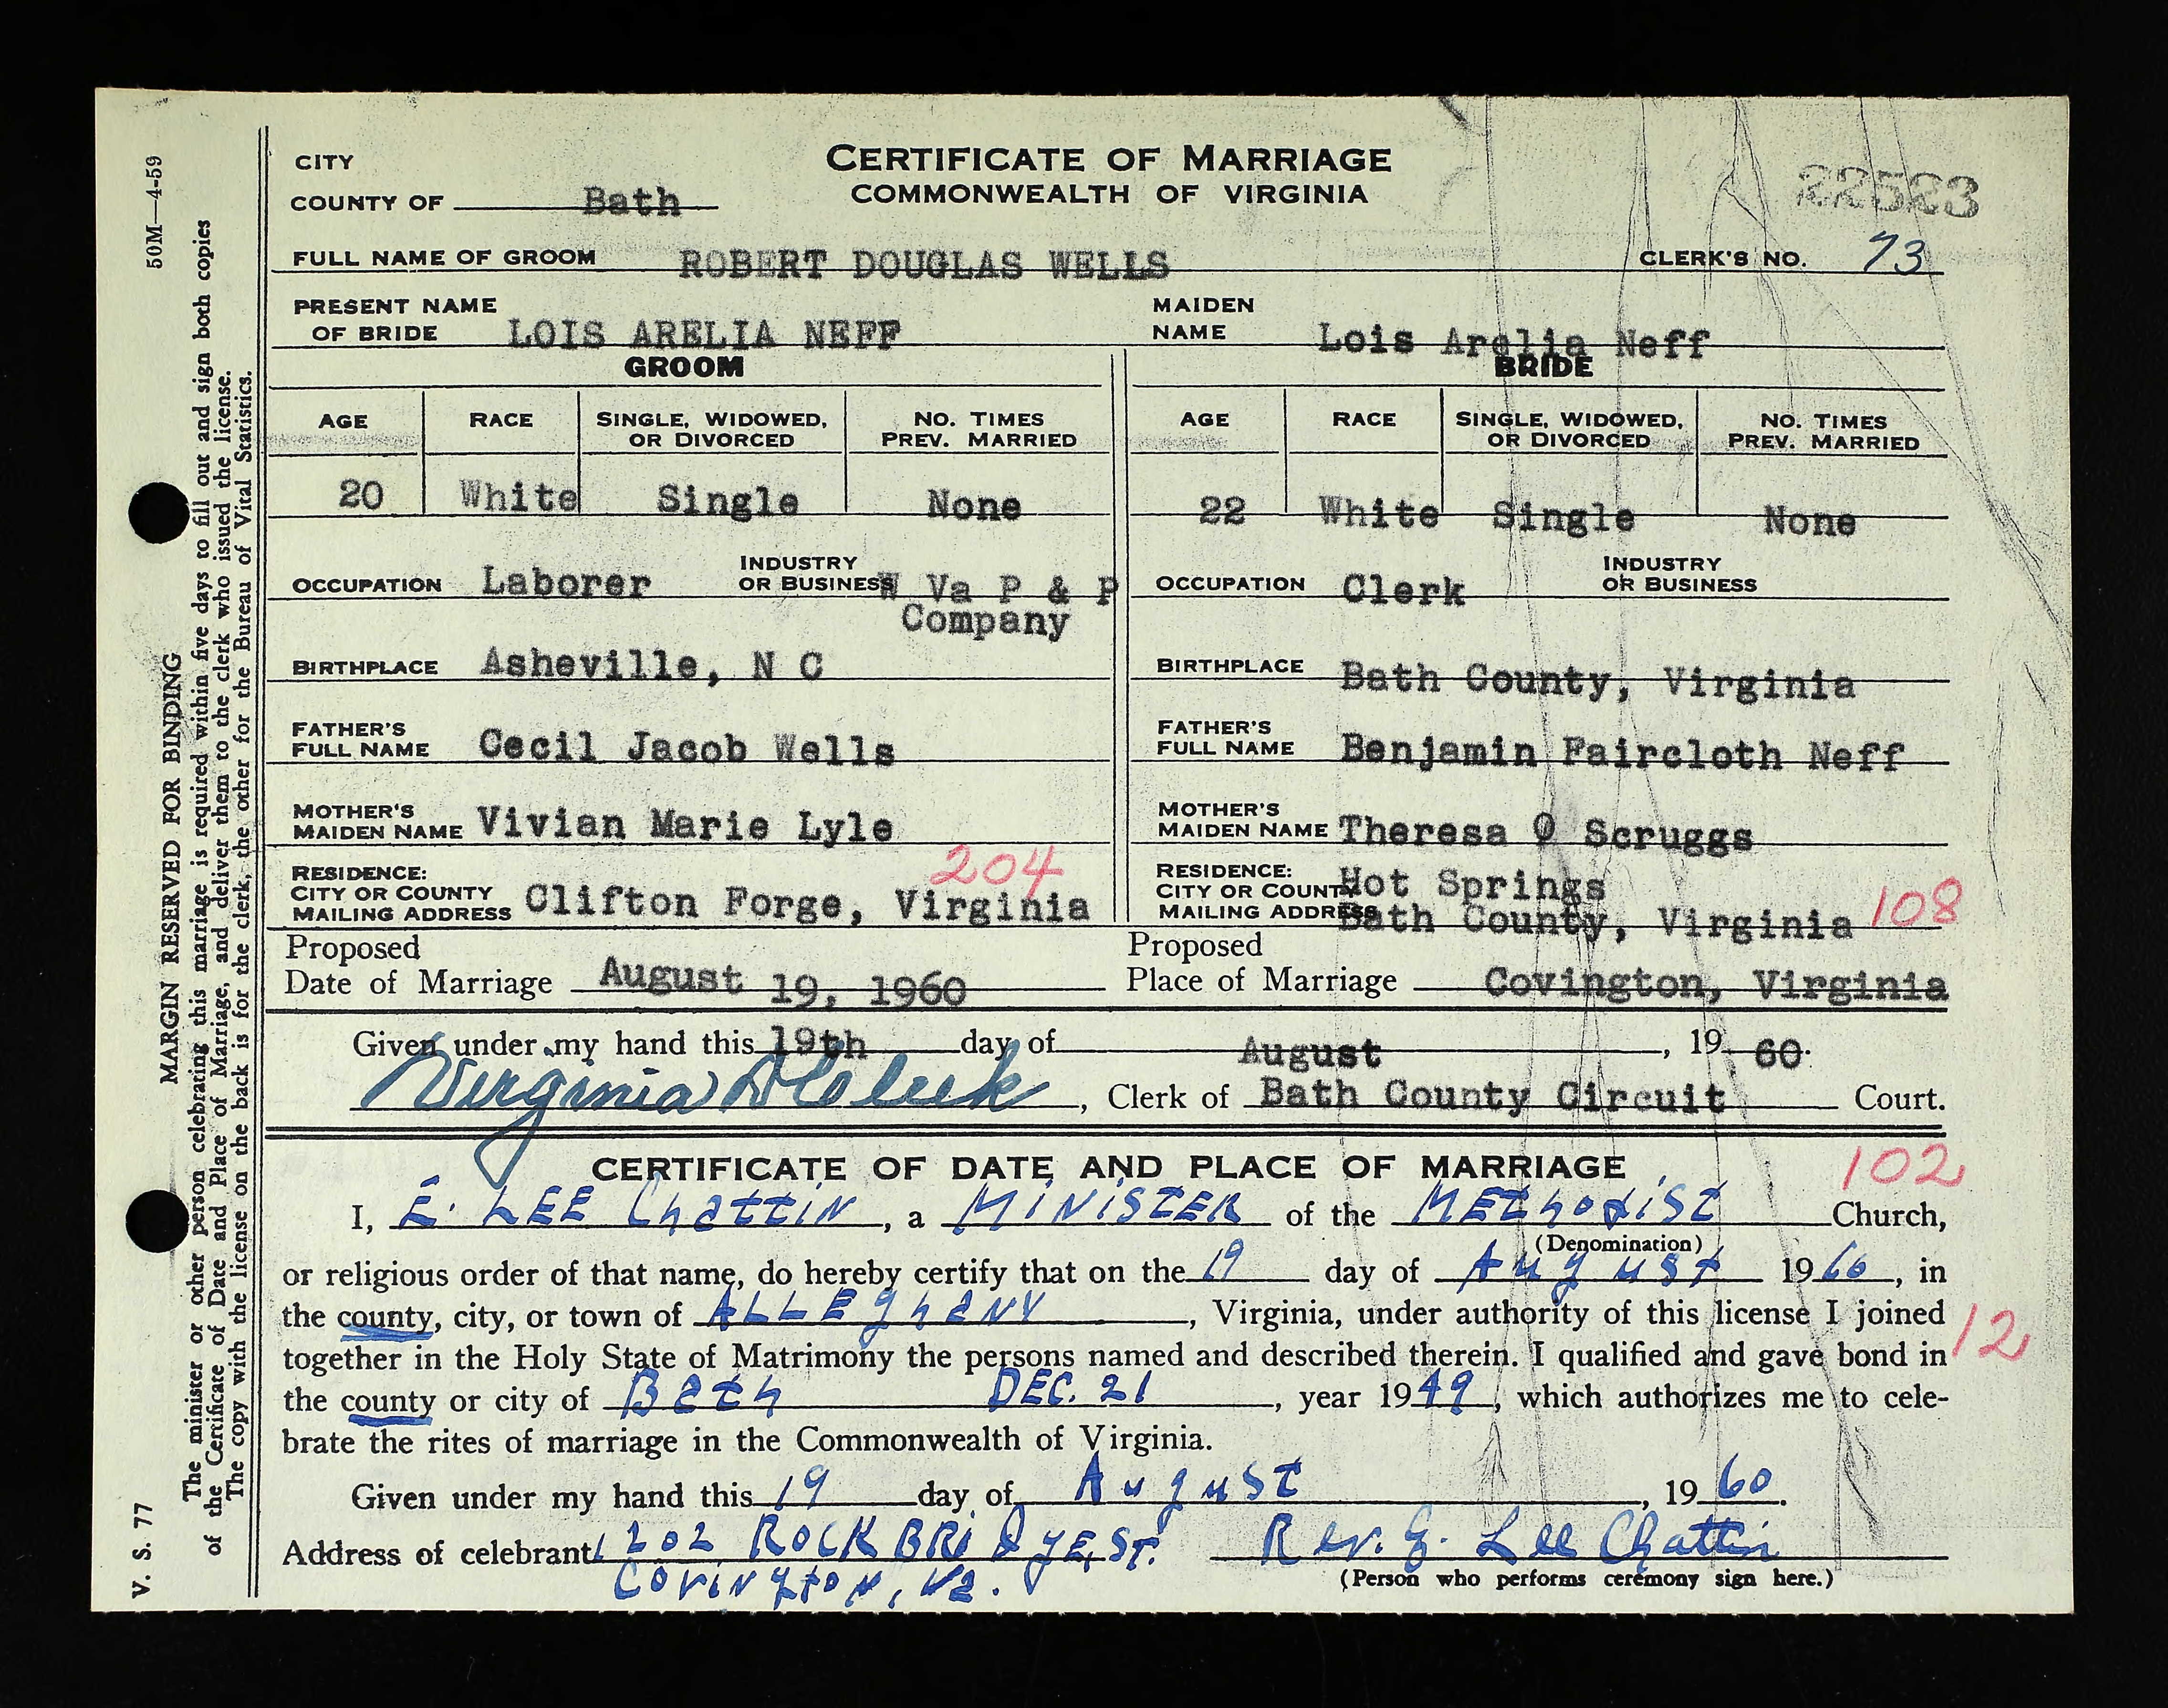 CITY
CERTIFICATE OF MARRIAGE
COUNTY OF Bath
COMMONWEALTH OF VIRGINIA
22523
FULL NAME OF GROOM ROBERT DOUGLAS WELLS
CLERK'S NO. 73
PRESENT NAME
OF BRIDE LOIS ARELIA NEFF
MAIDEN
NAME Lois Arelia Neff
GROOM
BRIDE
AGE RACE SINGLE, WIDOWED, OR DIVORCED NO. TIMES PREV. MARRIED
AGE RACE SINGLE, WIDOWED, OR DIVORCED NO. TIMES PREV. MARRIED
20 White Single None
22 White Single None
OCCUPATION Laborer INDUSTRY OR BUSINESS W Va P & P
Company
OCCUPATION Clerk INDUSTRY OR BUSINESS
BIRTHPLACE Asheville, N C
BIRTHPLACE Bath County, Virginia
FATHER'S
FULL NAME Cecil Jacob Wells
FATHER'S
FULL NAME Benjamin Faircloth Neff
MOTHER'S
MAIDEN NAME Vivian Marie Lyle
MOTHER'S
MAIDEN NAME Theresa O Scruggs
204
RESIDENCE:
CITY OR COUNTY
MAILING ADDRESS Clifton Forge, Virginia
RESIDENCE:
CITY OR COUNTY Hot Springs
MAILING ADDRESS Bath County, Virginia 108
Proposed
Date of Marriage August 19, 1960
Proposed
Place of Marriage Covington, Virginia
Given under my hand this 19th day of August, 19 60.
Virginia, Clerk of Bath County Circuit Court.
CERTIFICATE OF DATE AND PLACE OF MARRIAGE
102
I, E. LEE Chattin, a MINISTER of the METhodIST Church,
(Denomination)
or religious order of that name, do hereby certify that on the 19 day of August 1960, in
the county, city, or town of ALLEghANY, Virginia, under authority of this license I joined
together in the Holy State of Matrimony the persons named and described therein. I qualified and gave bond in 12
the county or city of Bath DEC. 21, year 1949, which authorizes me to cele-
brate the rites of marriage in the Commonwealth of Virginia.
Given under my hand this 19 day of August, 19 60.
Address of celebrant 1202 ROCKBRIdgE, ST. Rev. E. Lee Chattin
COVINgtON, Va.
(Person who performs ceremony sign here.)
50M—4-59
MARGIN RESERVED FOR BINDING
The minister or other person celebrating this marriage is required within five days to fill out and sign both copies
of the Certificate of Date and Place of Marriage, and deliver them to the clerk who issued the license.
The copy with the license on the back is for the clerk, the other for the Bureau of Vital Statistics.
V. S. 77